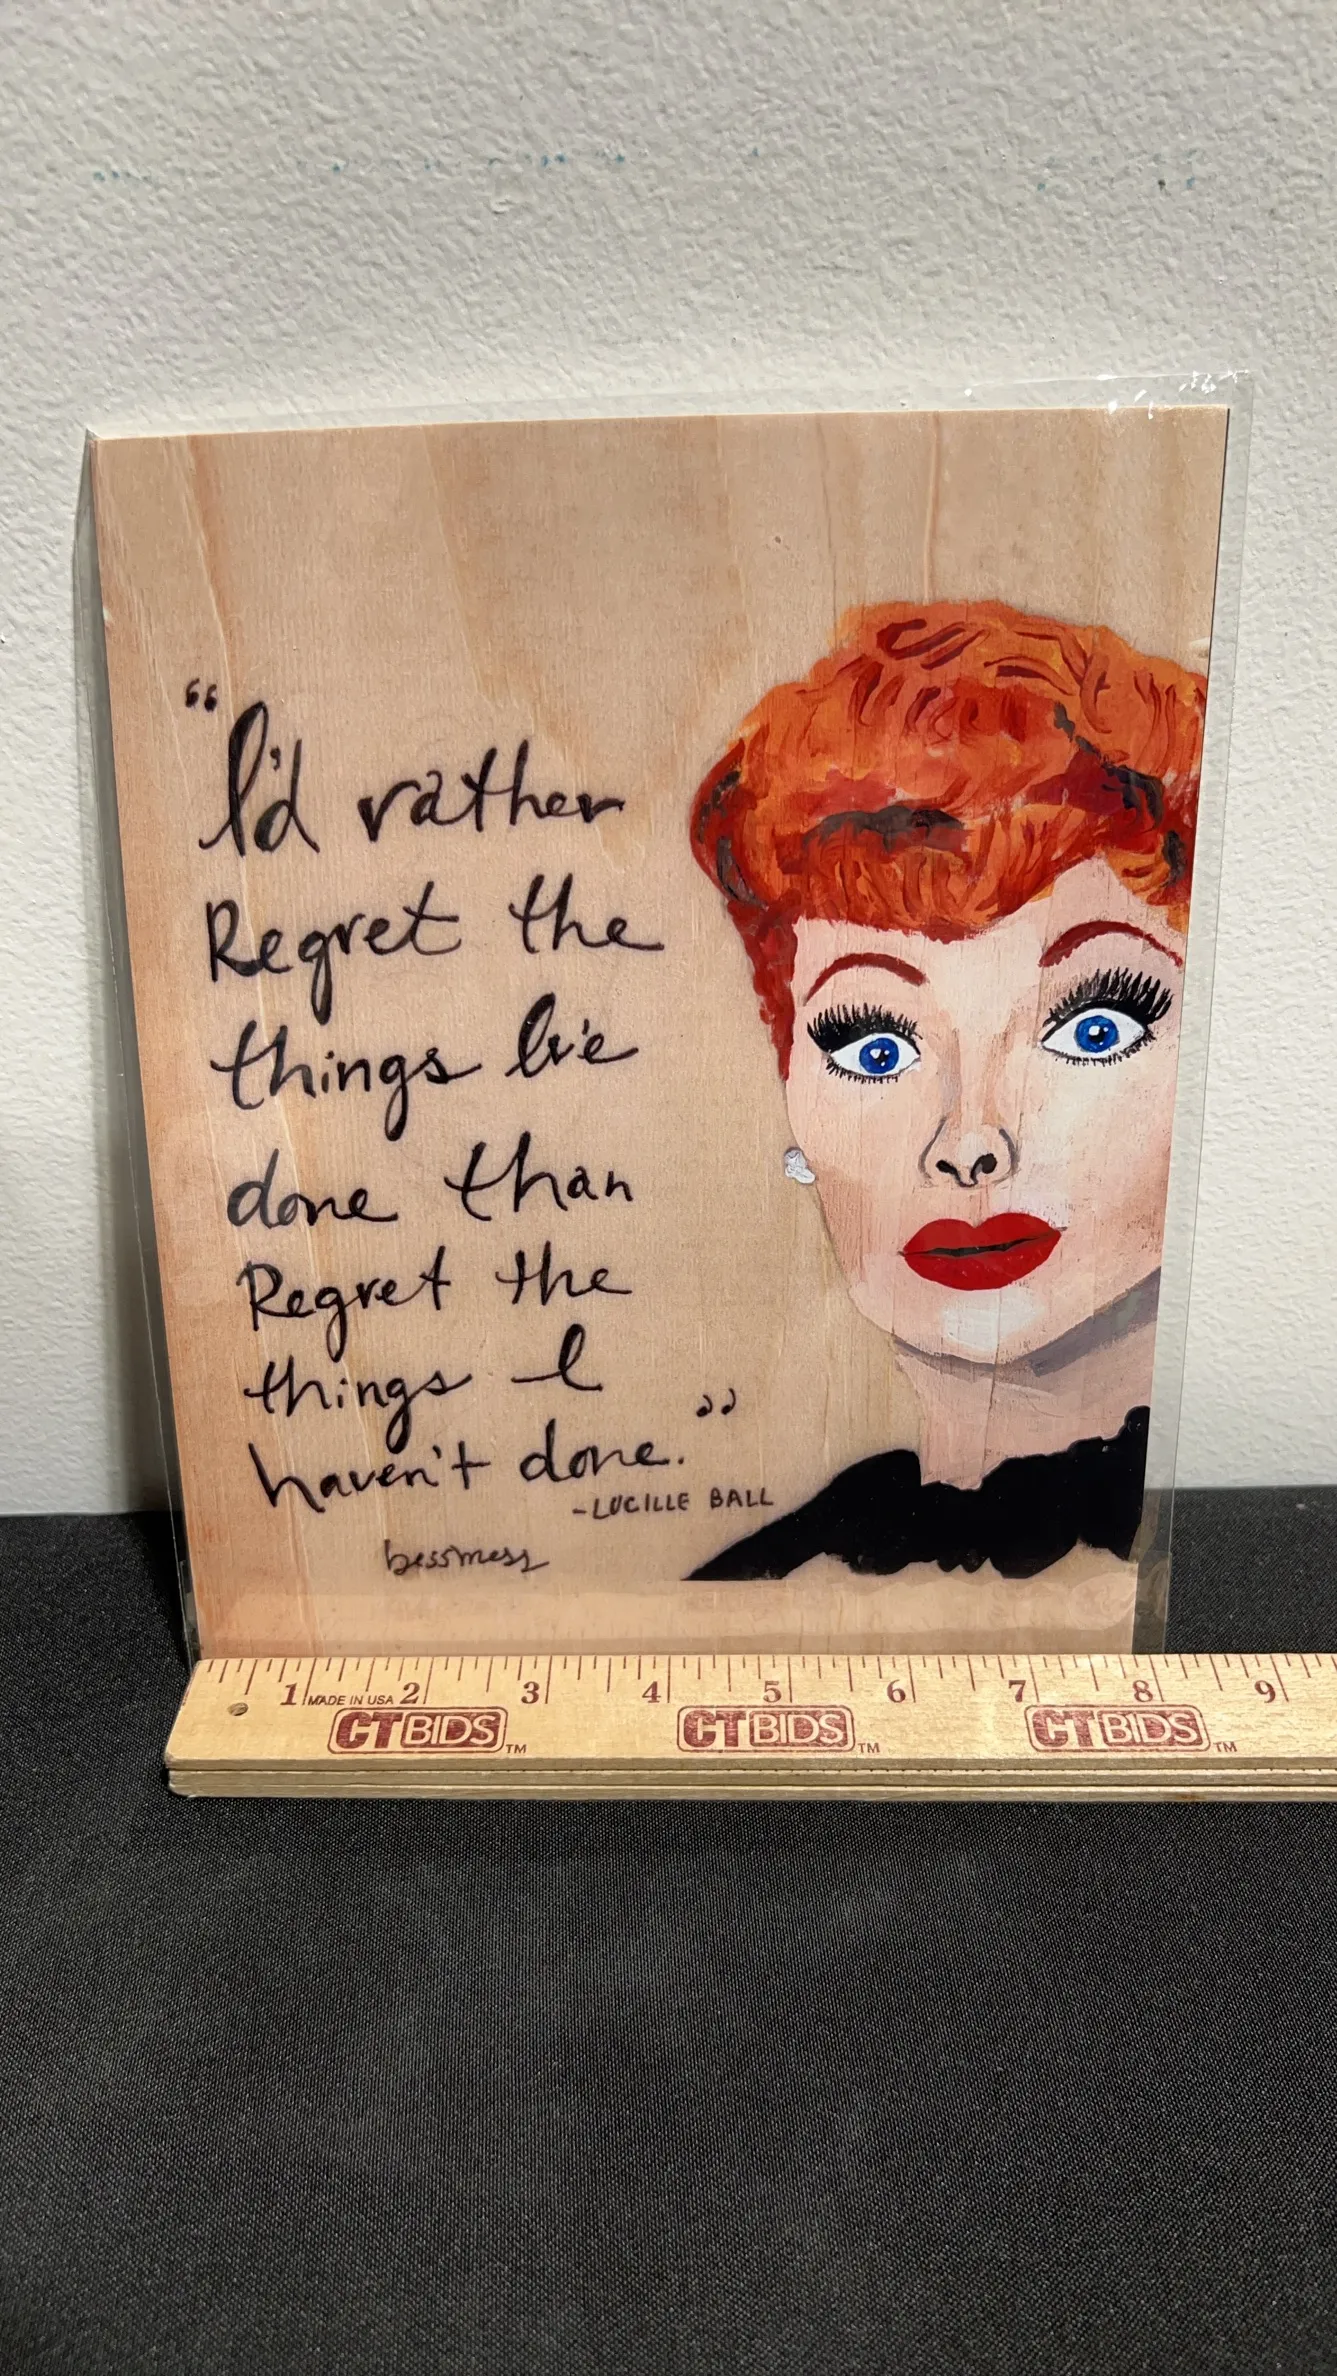 “I'd rather
Regret the
things I've
done than
Regret the
things I
haven't done.”
-LUCILLE BALL
bessmess
1 MADE IN USA 2 3 4 5 6 7 8 9
CTBIDS™ CTBIDS™ CTBIDS™